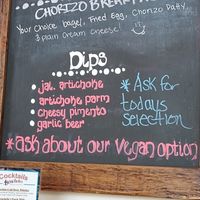 CHORIZO BREAKFA
Your Choice bagel, Fried Egg, Chorizo Patty,
& plain cream cheese!
Dips
jal. artichoke
artichoke parm
cheesy pimento
garlic beer
*Ask for
todays
selection
*ask about our vegan option
Cocktails